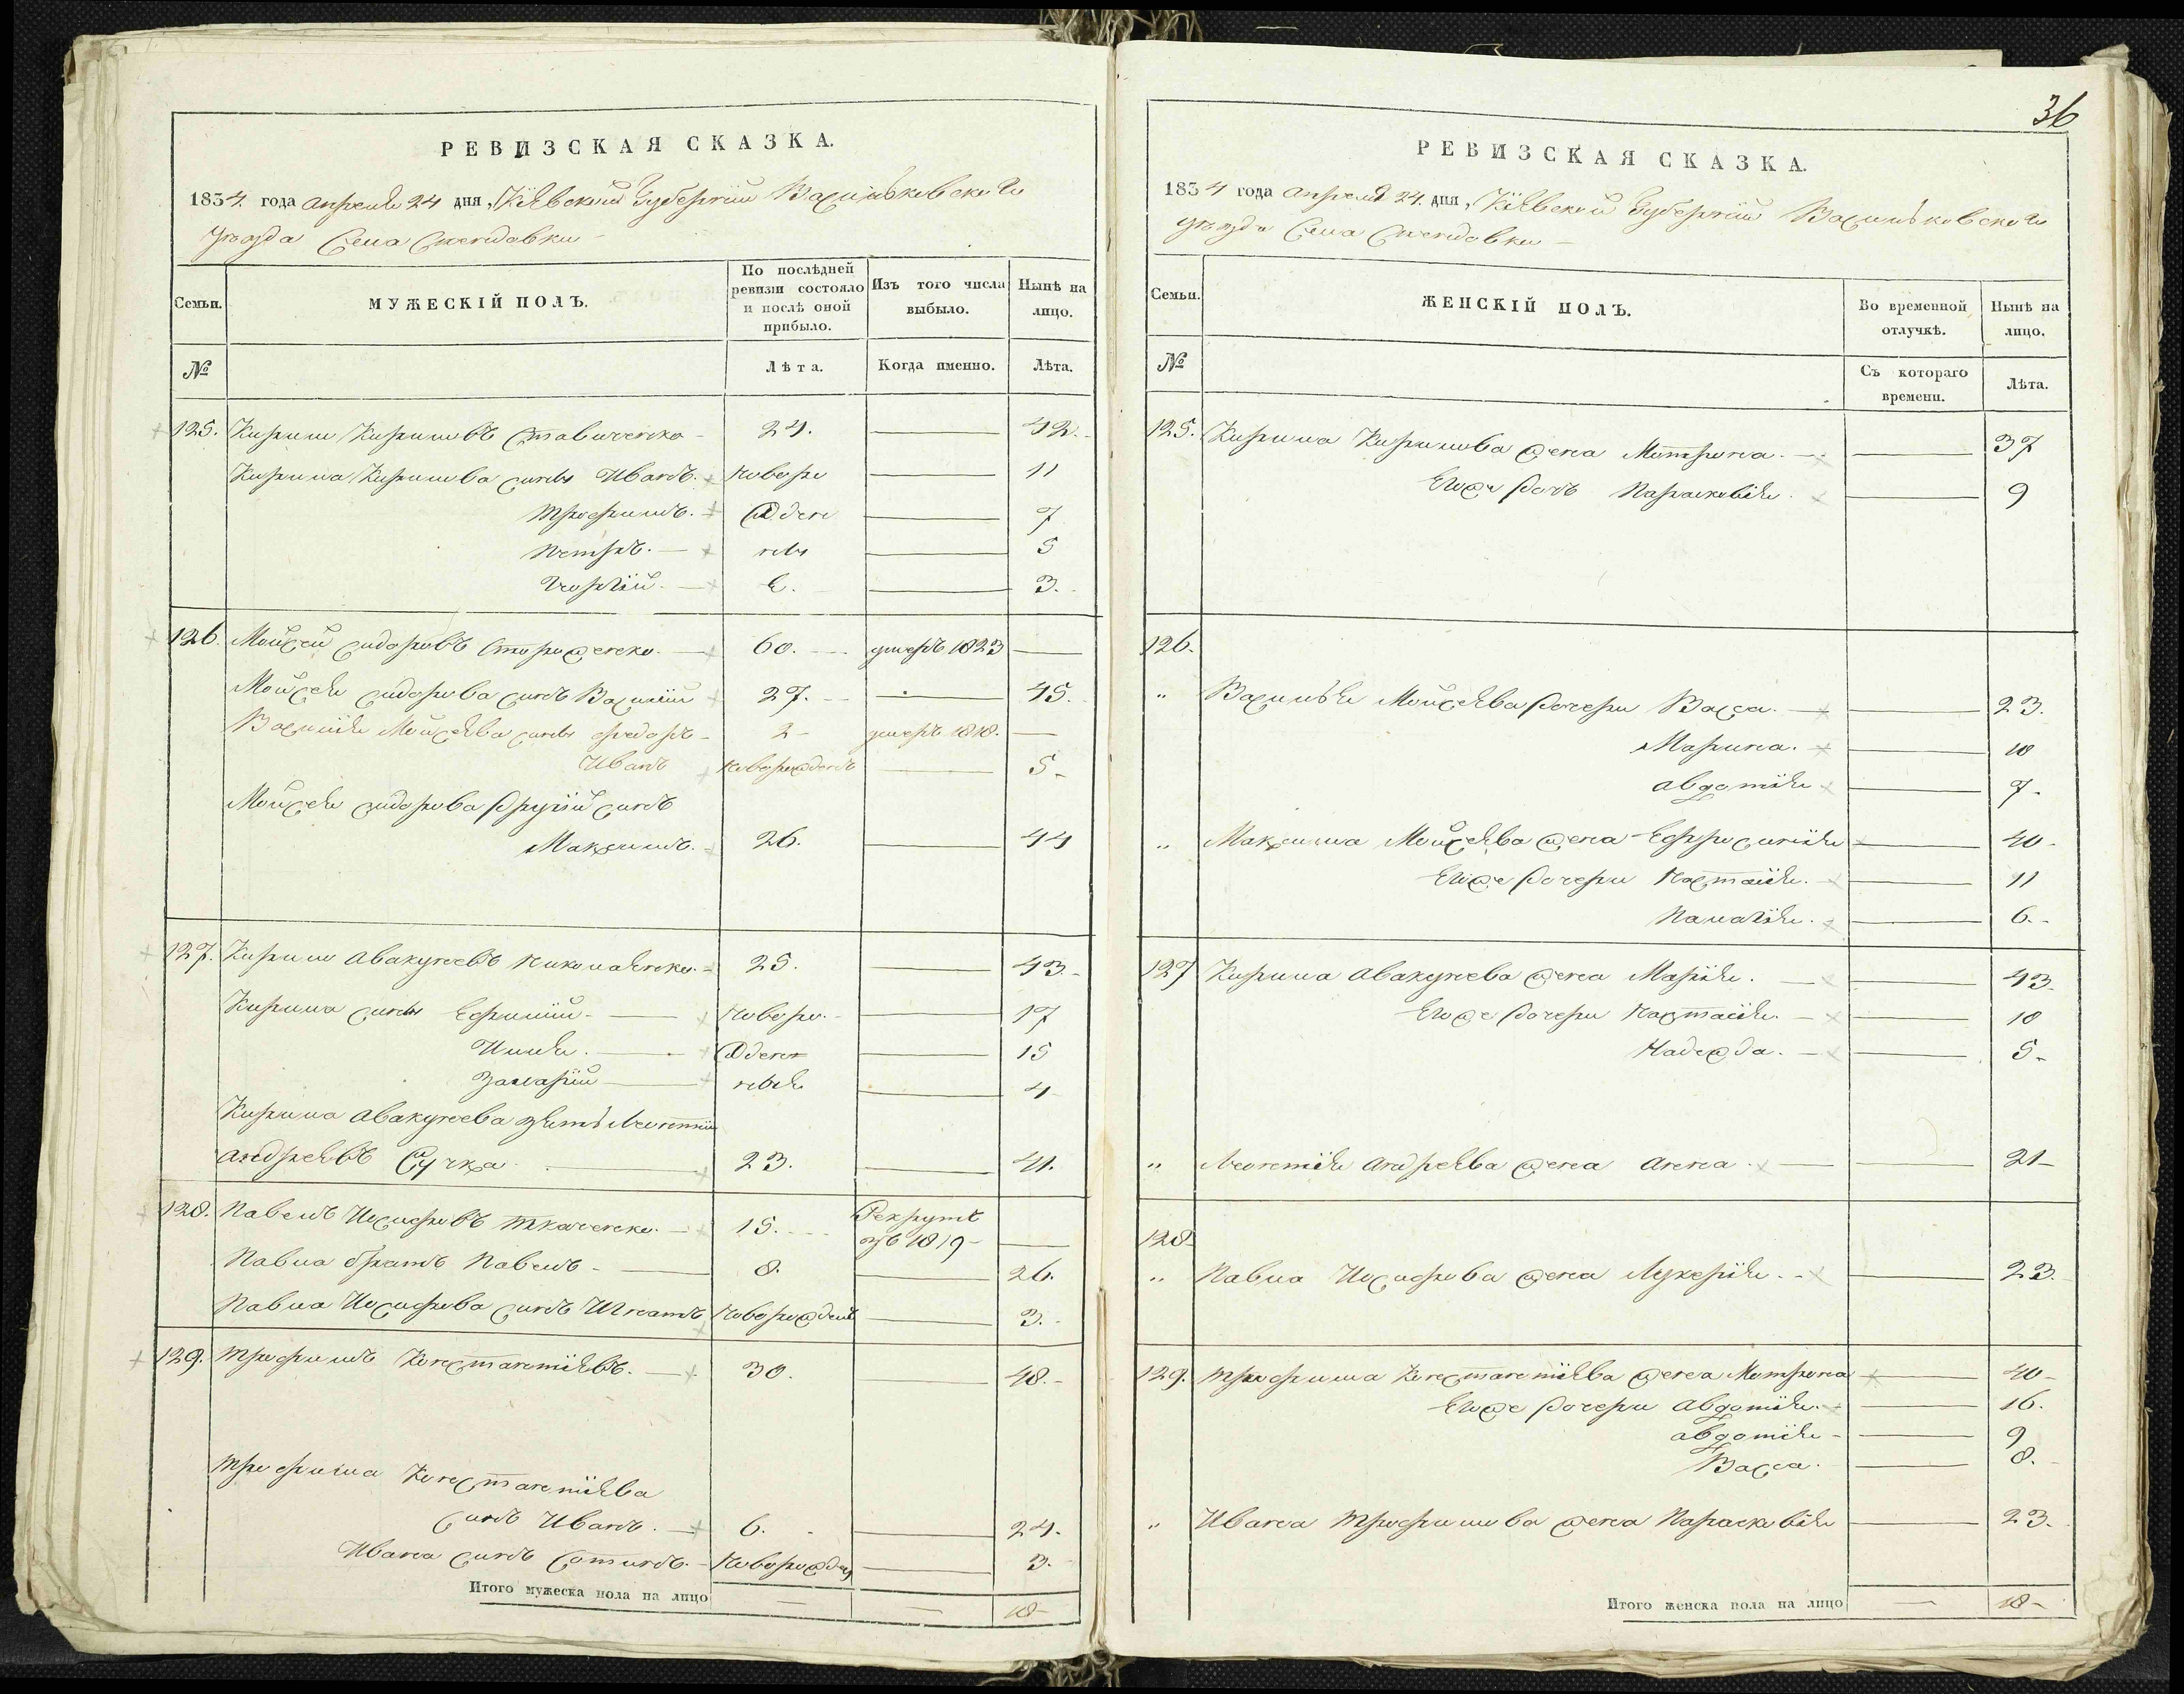 РЕВИЗСКАЯ СКАЗКА.
1834. года апреля 24 дня, Кіевской Губерніи Васильковскаго
уѣзда Села
Семьи. МУЖЕСКІЙ ПОЛЪ. По послѣдней ревизіи состояло и послѣ оной прибыло. Изъ того числа выбыло. Нынѣ на лицо.
№ Лѣта. Когда именно. Лѣта.
125. Кирилъ Кириловъ Ставиченко 24. — 42.
Кирила Кирилова сыны Иванъ. новоро — 11
Трофимъ. жден — 7
Петръ. ны — 5
Георгій. е. — 3.
126. Мойсей Сидоровъ Стороженко. 60. умеръ 1823 —
Мойсея Сидорова сынъ Василій 27. — 45.
Василія Мойсеява сыны Федоръ 2 умеръ 1818. —
Иванъ новорожденъ — 5
Мойсея Сидорова другій сынъ
Максимъ. 26. — 44
127. Кирилъ Авакумовъ Николаенко. 25. — 43
Кирила сыны Ефимій новоро. — 17
Илья. жден — 15
Захарій ныя — 4
Кирила Авакумова зять Леонтій
Андреявъ 23. — 41.
128. Павелъ Иосифовъ Ткаченко. 15. Рекрутъ
въ 1819 —
Павла братъ Павелъ 8. — 26.
Павла Иосифова сынъ Игнатъ новорожденъ — 3.
129. Трофимъ Константіявъ. 30. — 48.
Трофима Константіява
сынъ Иванъ. 6. — 24.
Ивана сынъ новорожден — 3.
Итого мужеска пола на лицо — — 18
36
РЕВИЗСКАЯ СКАЗКА.
1834 года апреля 24. дня, Кіевской Губерніи Васильковскаго
уѣзда Села
Семьи. ЖЕНСКІЙ ПОЛЪ. Во временной отлучкѣ. Нынѣ на лицо.
№ Съ котораго времени. Лѣта.
125. Кирила Кирилова жена Мотрона. — 37
Егоже дочь Парасковія. — 9
126.
" Василья Мойсеява дочери Васса. — 23.
Марина. — 10
Авдотія — 7.
" Максима Мойсеява жена Ефросинія — 40
Егоже дочери Настасія. — 11
Палагія. — 6.
127 Кирила Авакумова жена Марія. — 43.
Егоже дочери Настасія. — 10
Надежда. — 5
" Леонтія Андреява жена Анна — 21
128.
" Павла Иосифова жена Лукерія. — 23.
129. Трофима Константіява жена Мотрона — 40
Егоже дочери Авдотія. — 16.
Авдотія — 9
Васса. — 8.
" Ивана Трофимова жена Парасковія — 23.
Итого женска пола на лицо — 18